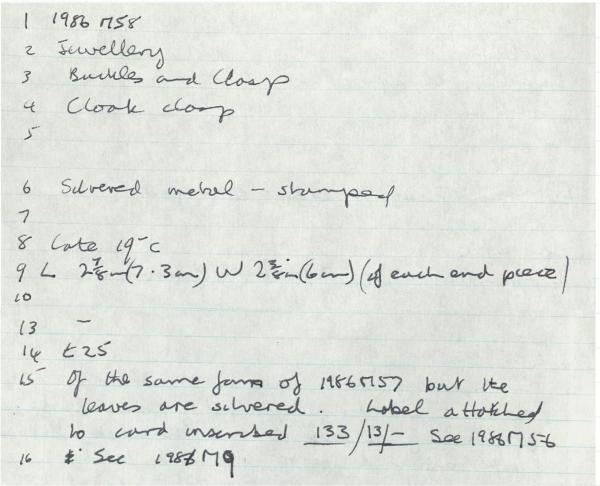 1 1986 M58
2 Jewellery
3 Buckles and Clasp
4 Cloak clasp
5
6 Silvered metal - stamped
7
8 Late 19th c
9 L 2 7/8 in (7.3 cm) W 2 3/8 in (6 cm) (of each end piece)
10
13 -
14 £25
15 Of the same form of 1986 M57 but the
leaves are silvered. Label attatched
to card inscribed 133/13/- See 1986 M56
16 See 1986 M9